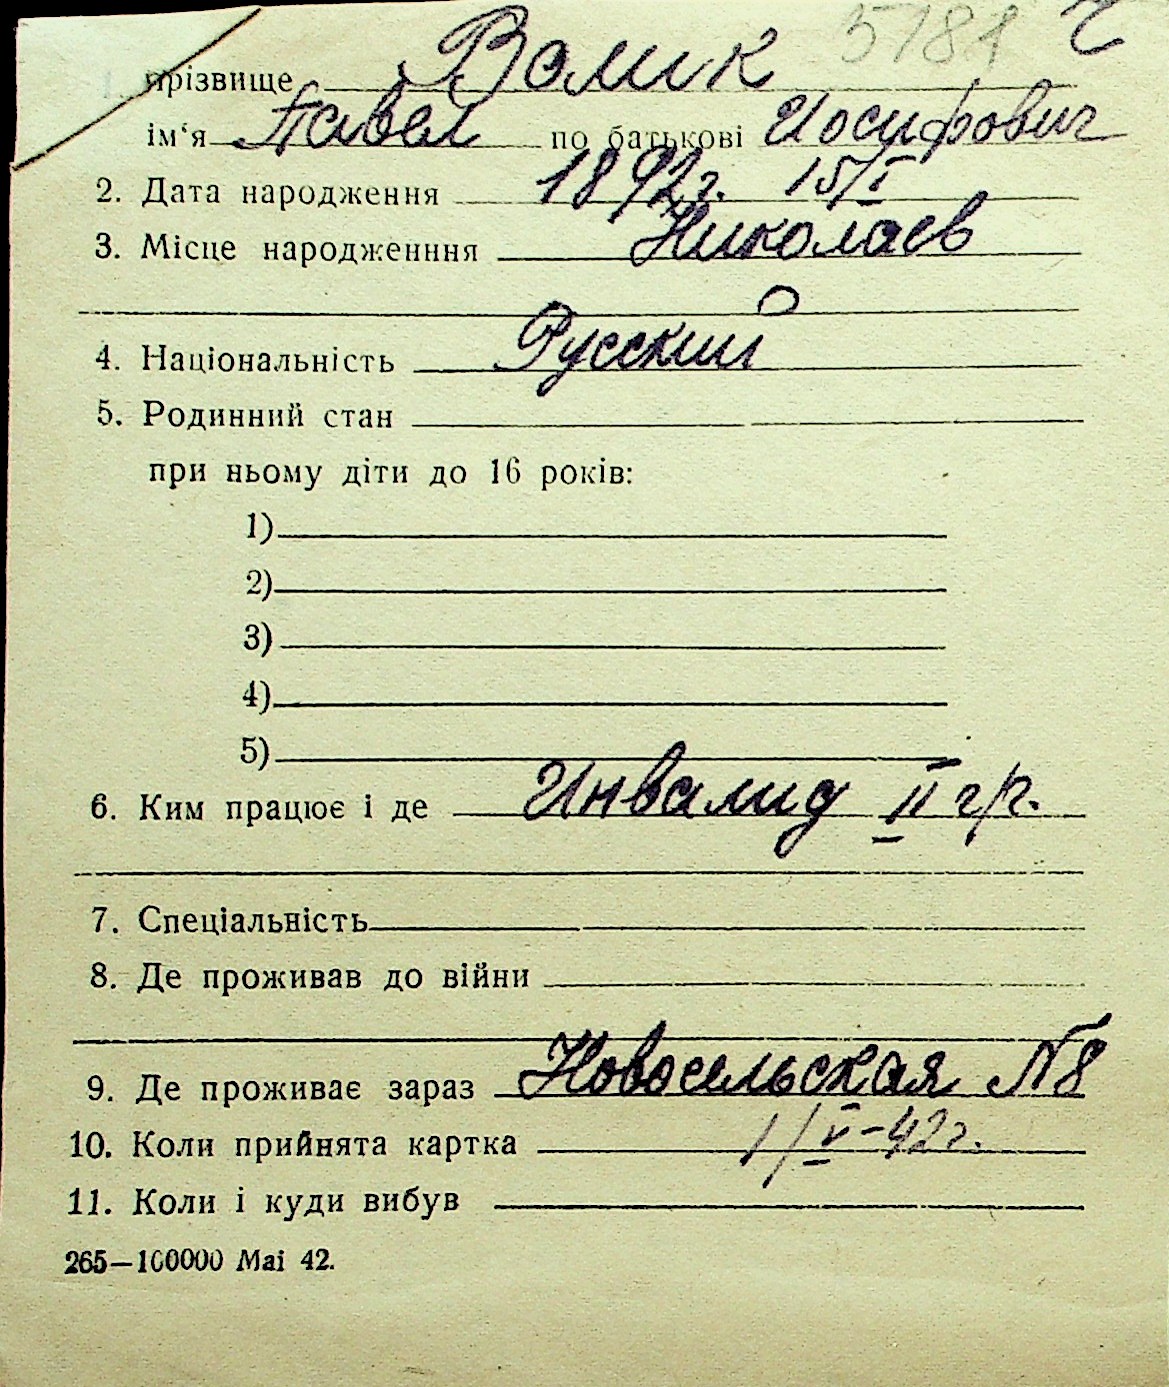 5181
1. прізвище Волик
ім‘я Павел по батькові Иосифович
2. Дата народження 1892г. 15/I
3. Місце народженння Николаев
4. Національність Русский
5. Родинний стан
при ньому діти до 16 років:
1)
2)
3)
4)
5)
6. Ким працює і де Инвалид II гр.
7. Спеціальність
8. Де проживав до війни
9. Де проживає зараз Новосельская №8
10. Коли прийнята картка 1/V-42г.
11. Коли і куди вибув
265—100000 Mai 42.